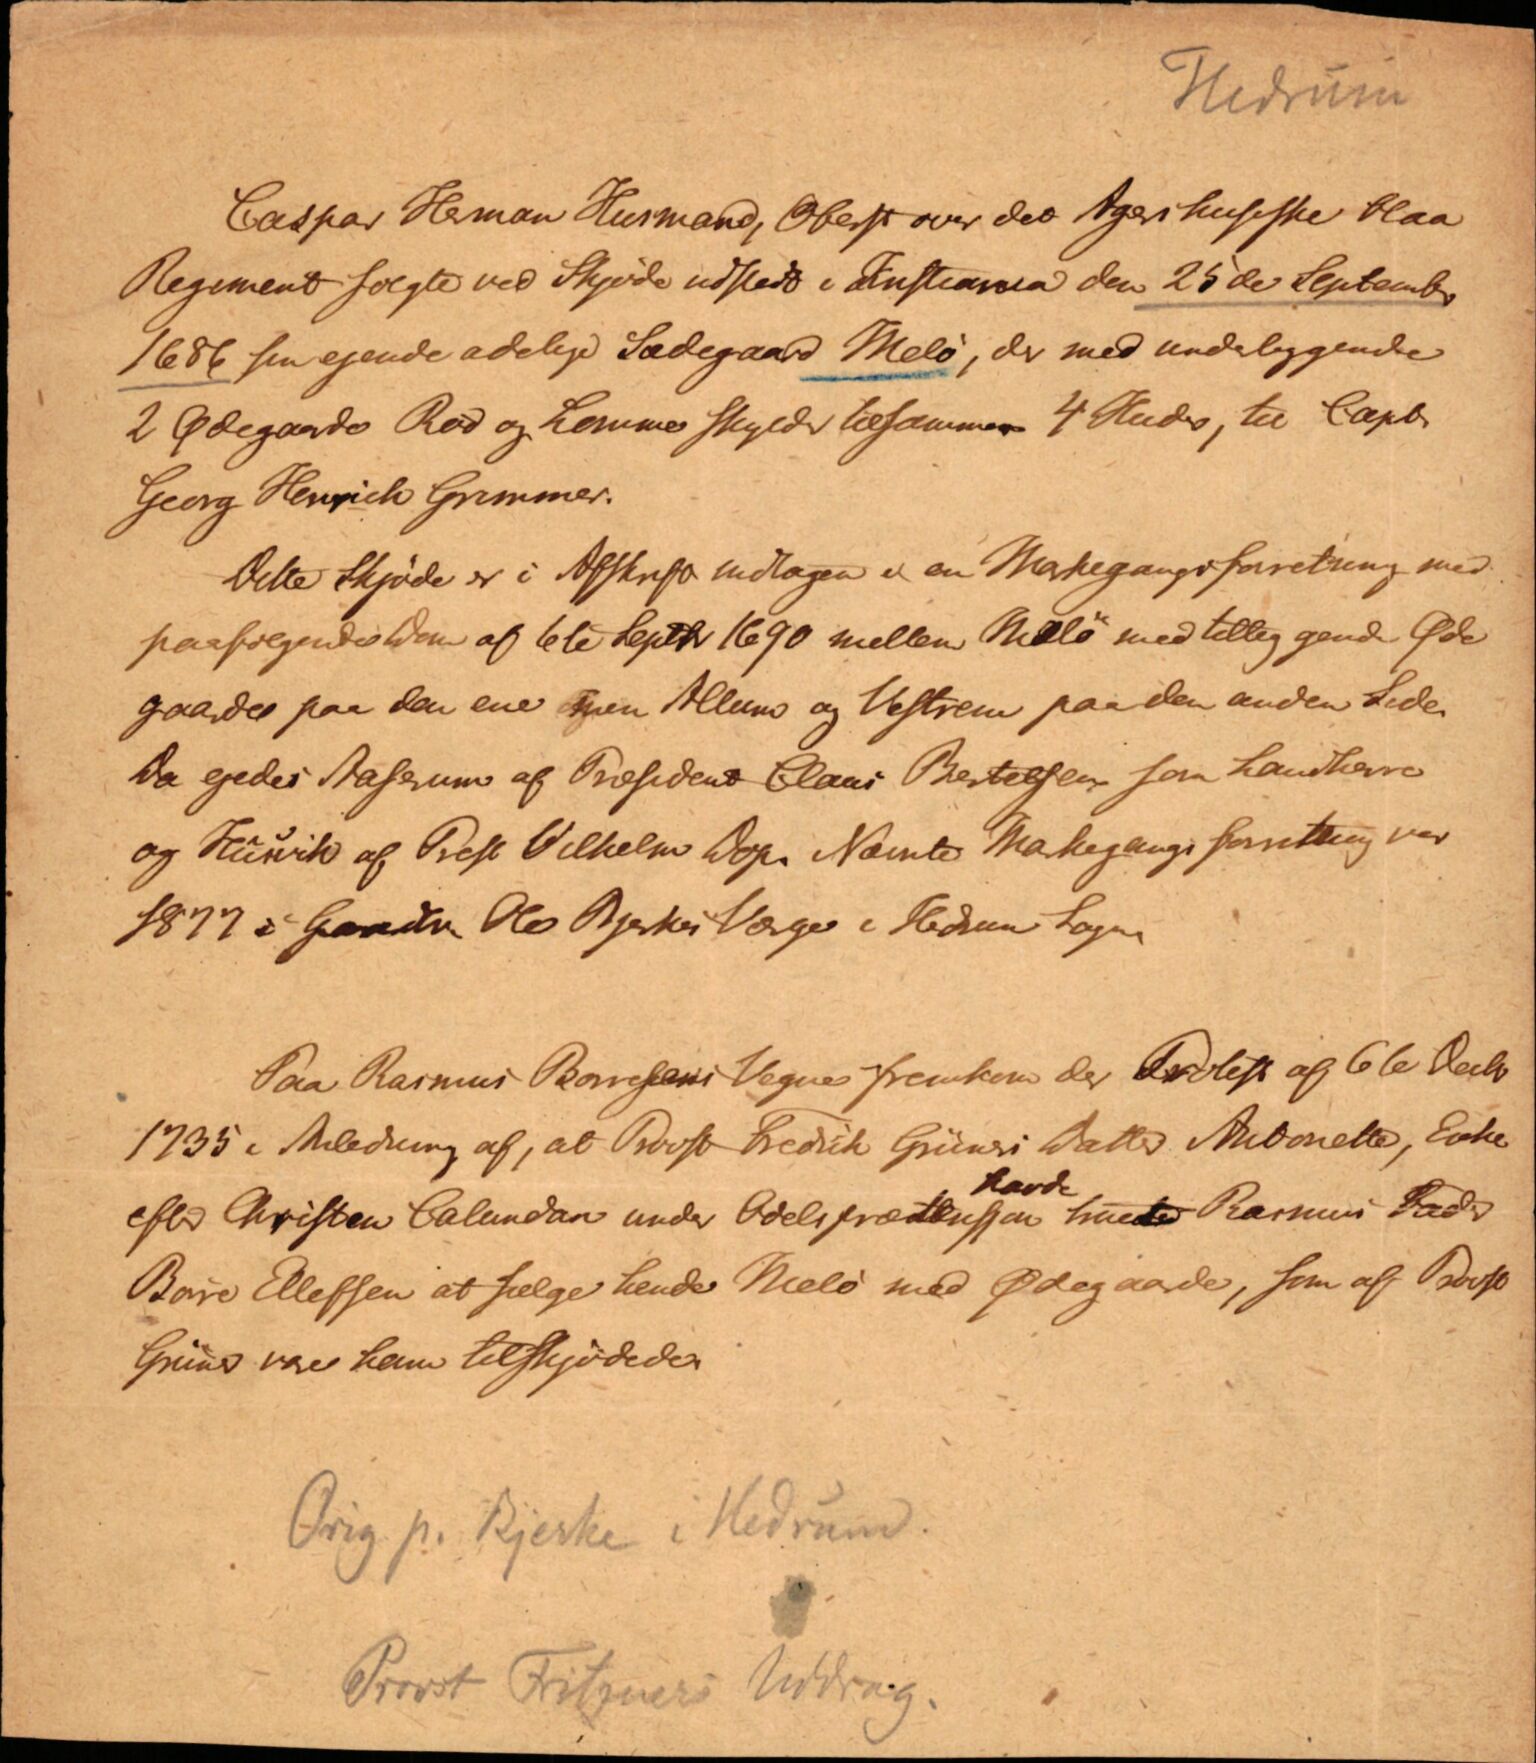 Hedrum
Caspar Herman Husmand, Oberst over det Agershusiske blaa
Regiment solgte ved Skjöde udstedt i Christiania den 25de Septembr
1686 sin ejende adelige Sædegaard Melö, der med underliggende
2 Ødegaarde Röd og Lomme skylder tilsammen 4 Huder, til Capt.
Georg Henrich Grimmer.
Dette Skjöde er i Afskrift indtagen i en Markegangsforretning med
paafølgende Dom af 6te Septbr 1690 mellem Melö med tilliggende Øde
gaarde paa den ene men Allum og Vestrem paa den anden Side.
Da ejedes Aaserum af Præsident Claus Bertelsen som Landherre
og Husvik af Præst Vilhelm Dop. Nævnte Markegangsforretning var
1877 i Ole Bjerkes Værge i Hedrum Sogn.
Paa Rasmus Borresens Vegne fremkom der Protest af 6te Decbr
1735 i Anledning af, at Provst Fredrik Grüners Datter Antonette, Enke
efter Christen Calundan under Odelsprætension havde Rasmus Fader
Borre Ellefsen at sælge hende Melö med Ødegaarde, som af Provst
Grüner vare ham tilskjödede.
Orig p. Bjerke i Hedrum.
Provst Fritzners Uddrag.